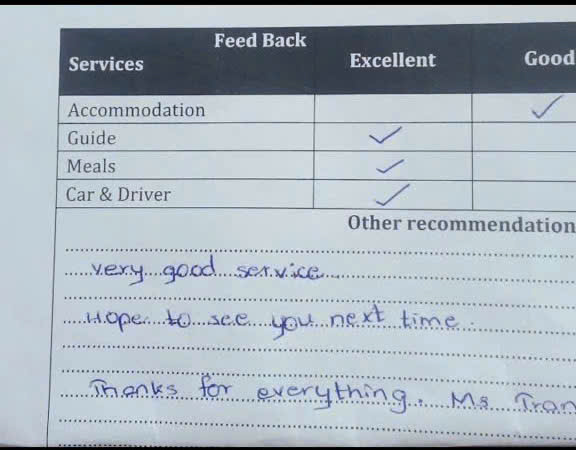 Feed Back
Services Excellent Good
Accommodation
Guide
Meals
Car & Driver
Other recommendation
very good service
Hope to see you next time.
Thanks for everything. Ms Tran